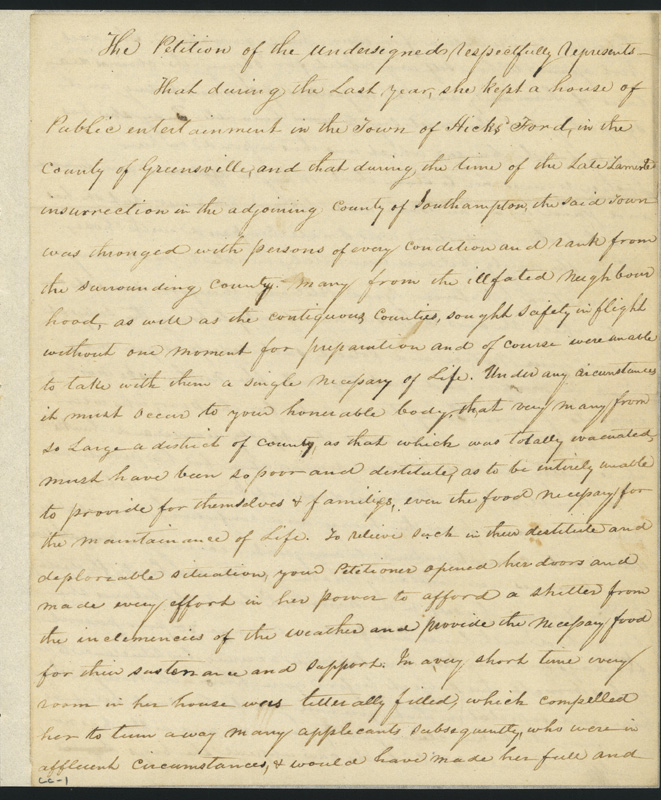 The Petition of the undersigned respectfully represents—
That during the Last year, she kept a house of
Public entertainment in the Town of Hicks' Ford, in the
County of Greensville, and that during the time of the Late
insurrection in the adjoining County of Southampton, the said Town
was thronged with persons of every condition and rank from
the surrounding county. Many from the illfated neighbour
hood, as well as the contiguous Counties, sought safety in flight
without one moment for preparation and of course were unable
to take with them a single necessary of Life. Under any circumstances
it must occur to your honourable body, that very many from
so Large a district of county, as that which was totally evacuated,
must have been so poor and destitute, as to be entirely unable
to provide for themselves & families, even the food necessary for
the maintainance of Life. To relieve such in their destitute and
deploreable situation, your Petitioner opened her doors and
made every effort in her power to afford a shelter from
the inclemencies of the weather and provide the necessary food
for their sustenance and support. In a very short time every
room in her house was litterally filled, which compelled
her to turn away many applicants subsequently, who were in
affluent circumstances, & would have made her full and